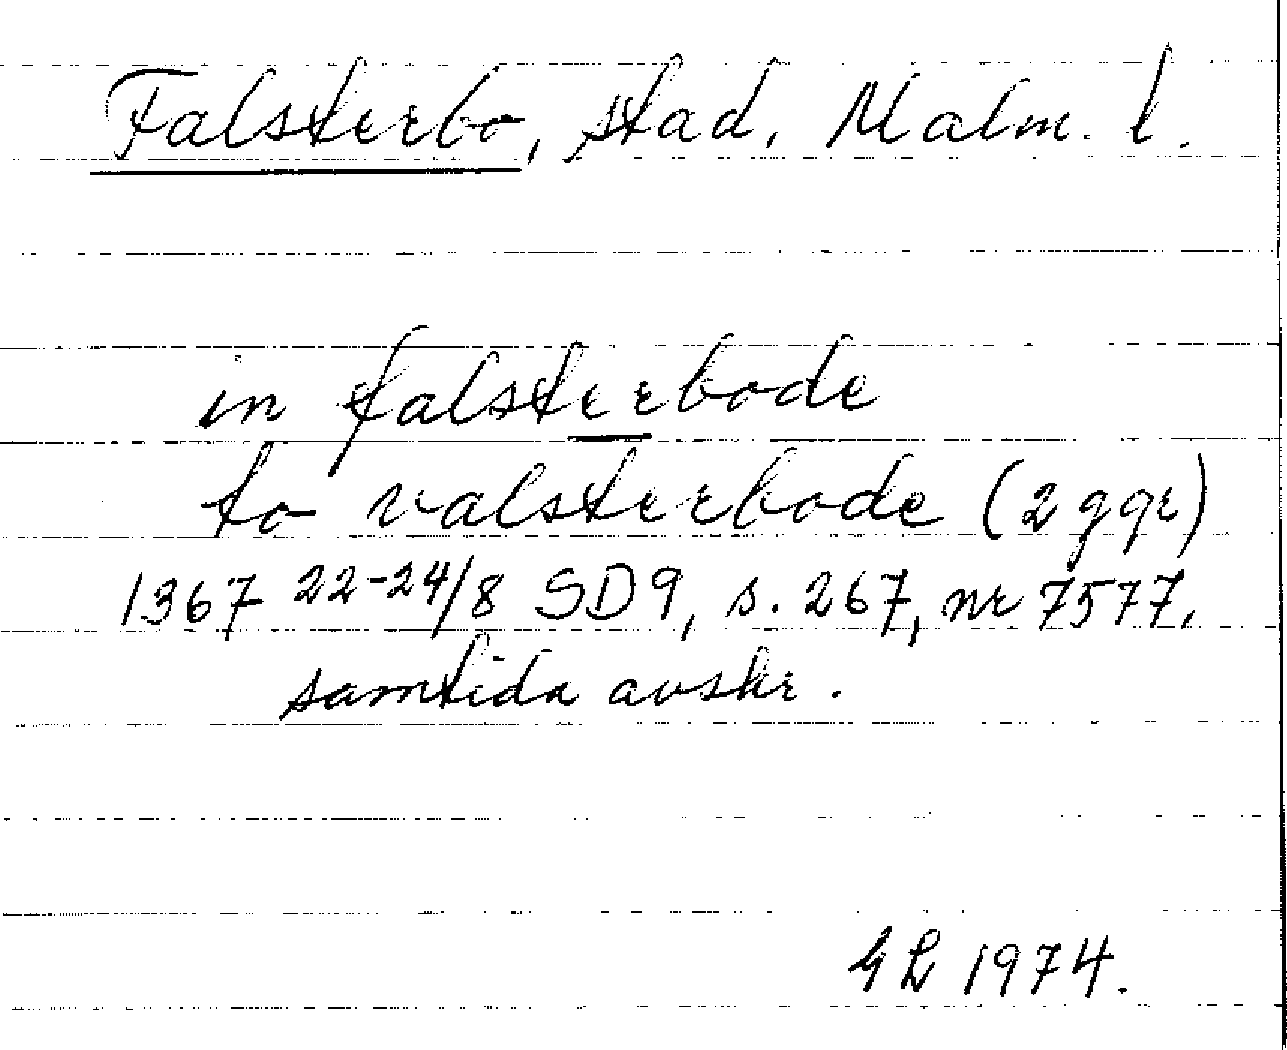 Falsterbo, stad, Malm. l.
in falsterbode
to valsterbode (2 ggr)
1367 22-24/8 SD9, s. 267, nr 7577,
samtida avskr.
GL 1974.